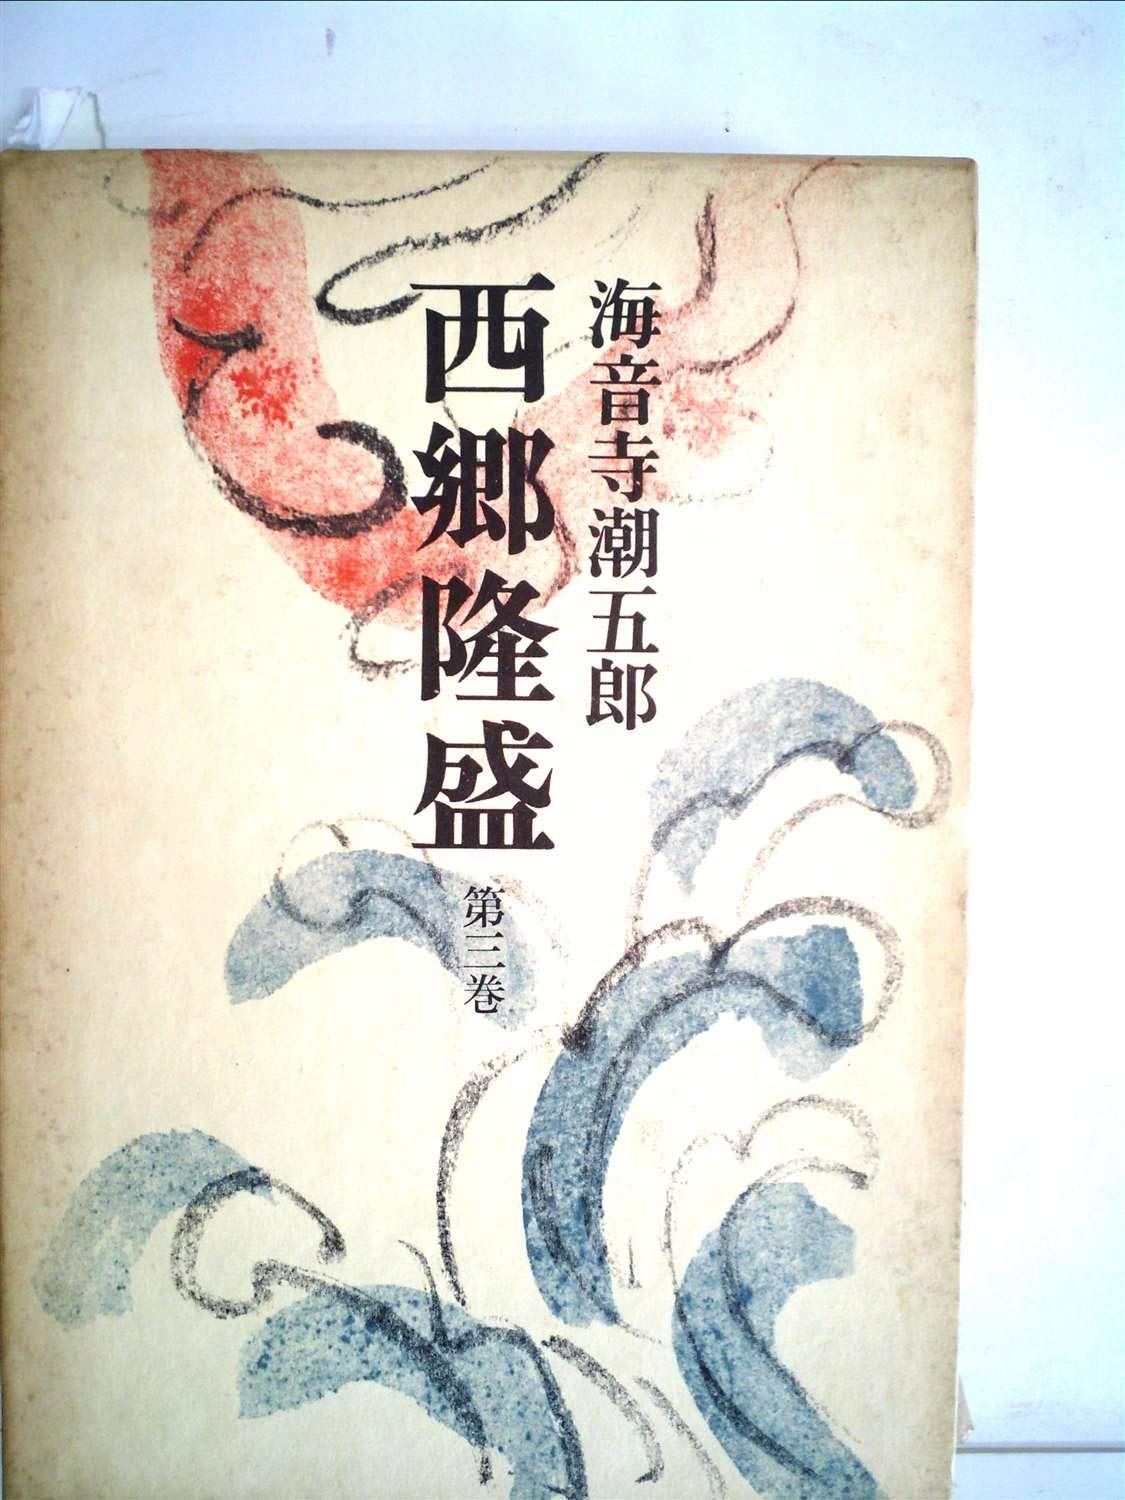 海音寺潮五郎
西郷隆盛
第三巻